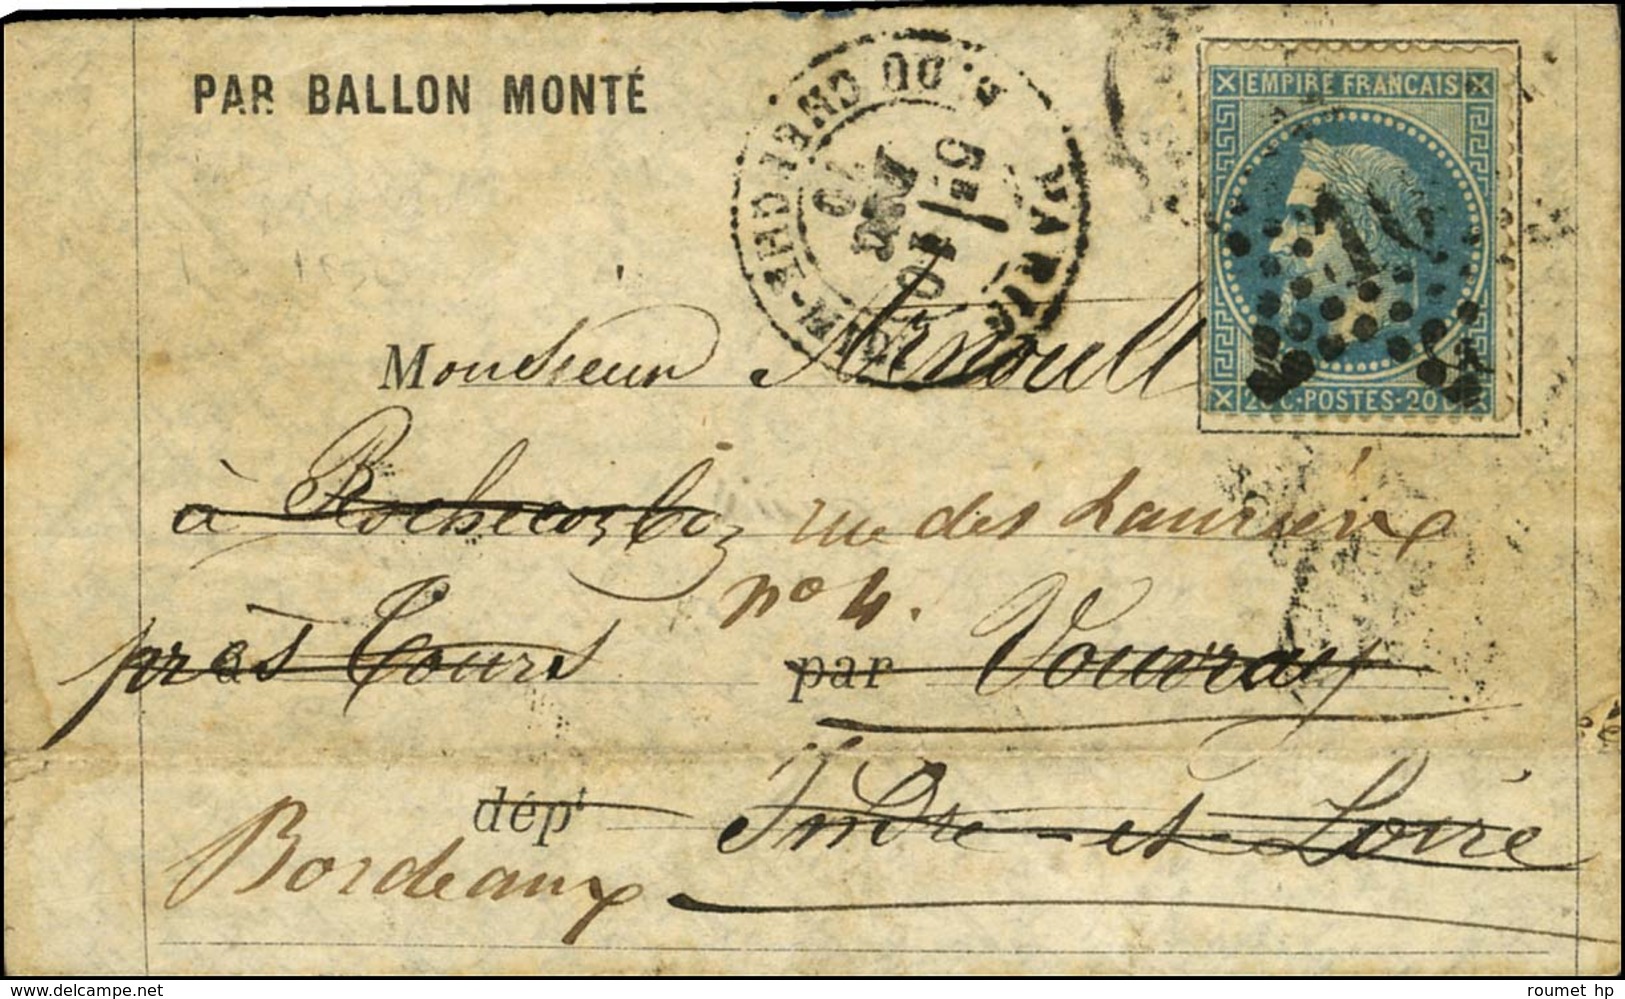 PAR BALLON MONTÉ
PARIS R. DU CHERCHE-MIDI
5E / 10
JANV
EMPIRE FRANÇAIS
20 C-POSTES-20 C
Monsieur Arnoult
à Rochecorbon rue des Lauriers
no 4.
près Tours par Vouvray
dépt Indre-et-Loire
Bordeaux
delcampe.net
roumet hp